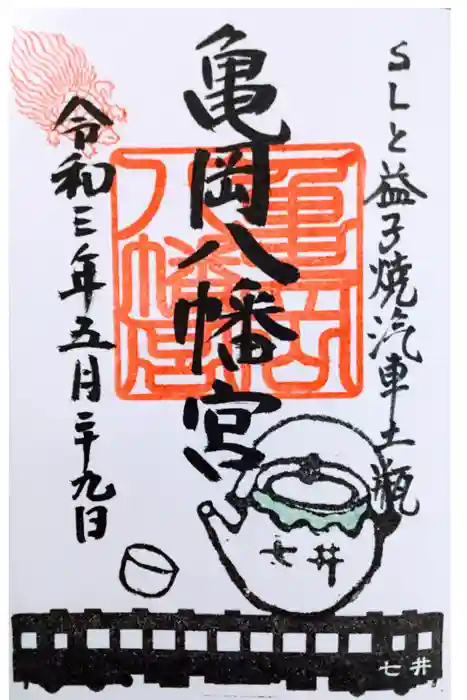 SLと益子焼汽車土瓶
亀岡八幡宮
亀岡
八幡宮
令和三年五月二十九日
七井
七井